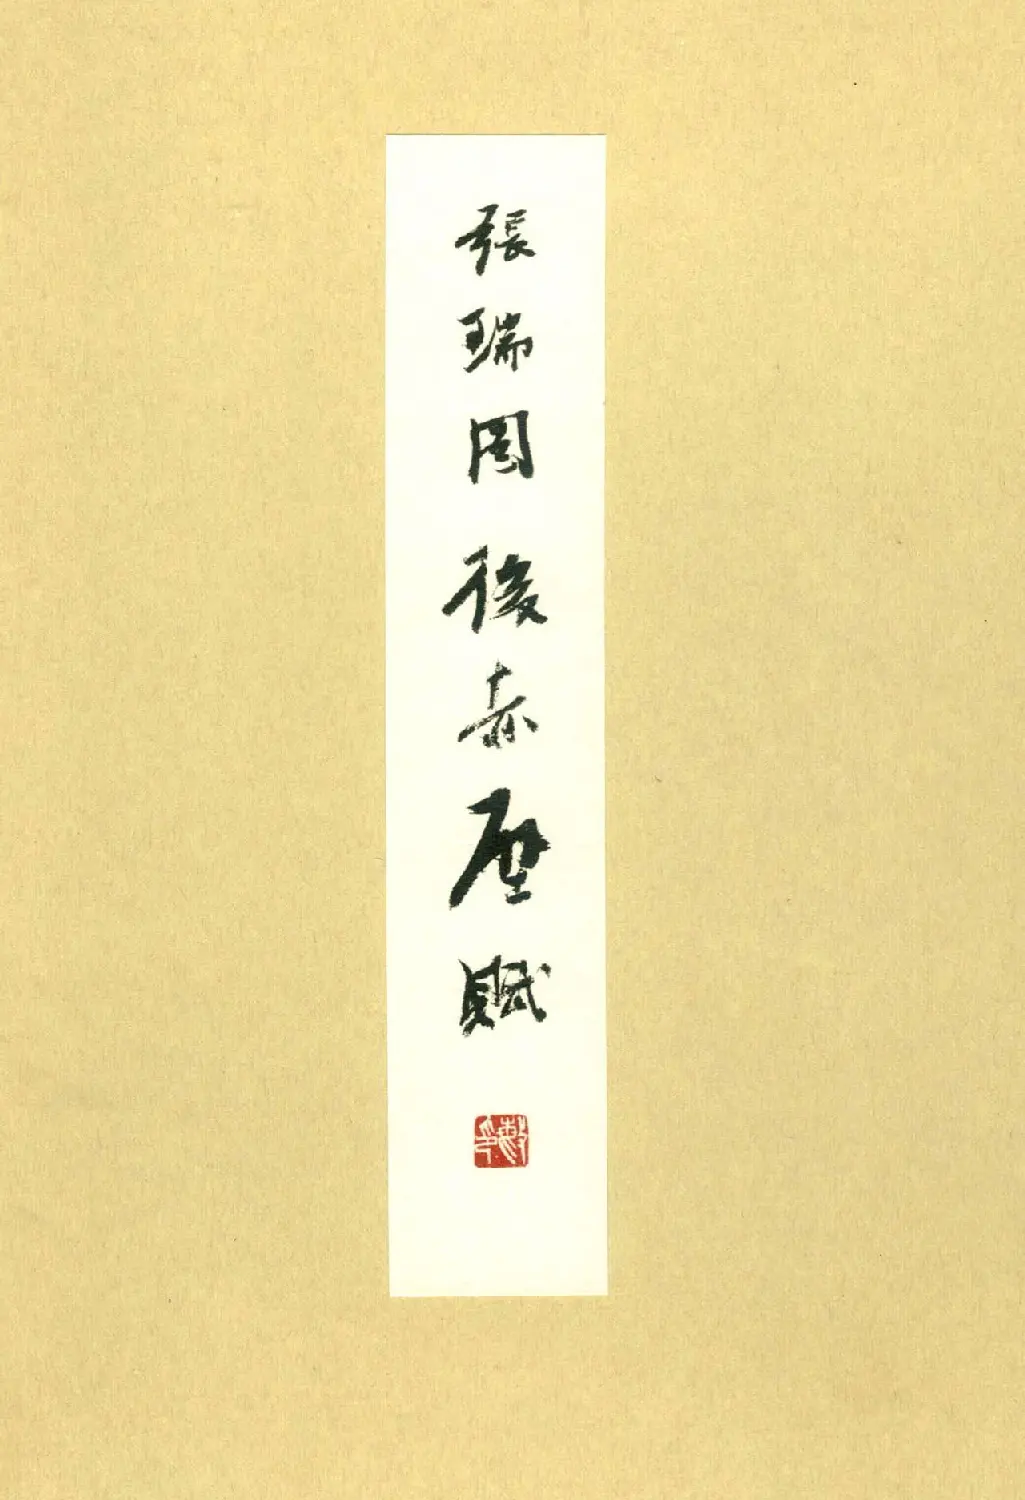 張瑞圖後赤壁賦